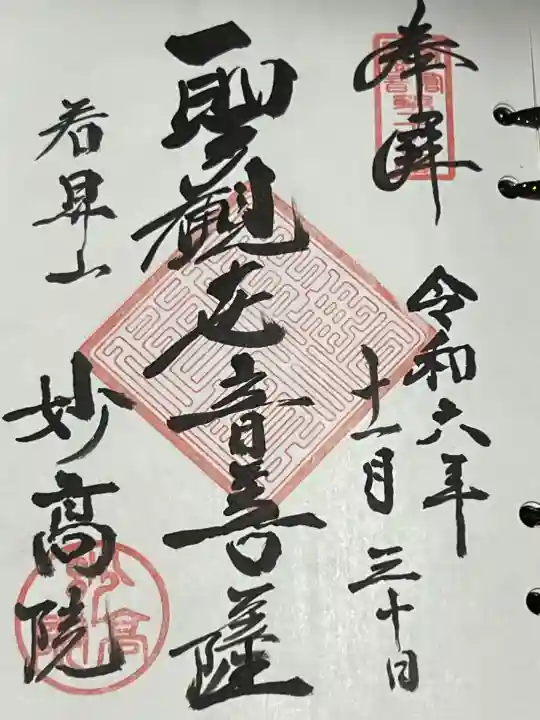 奉拝
令和六年
十一月三十日
聖観世音菩薩
若昇山
妙高院